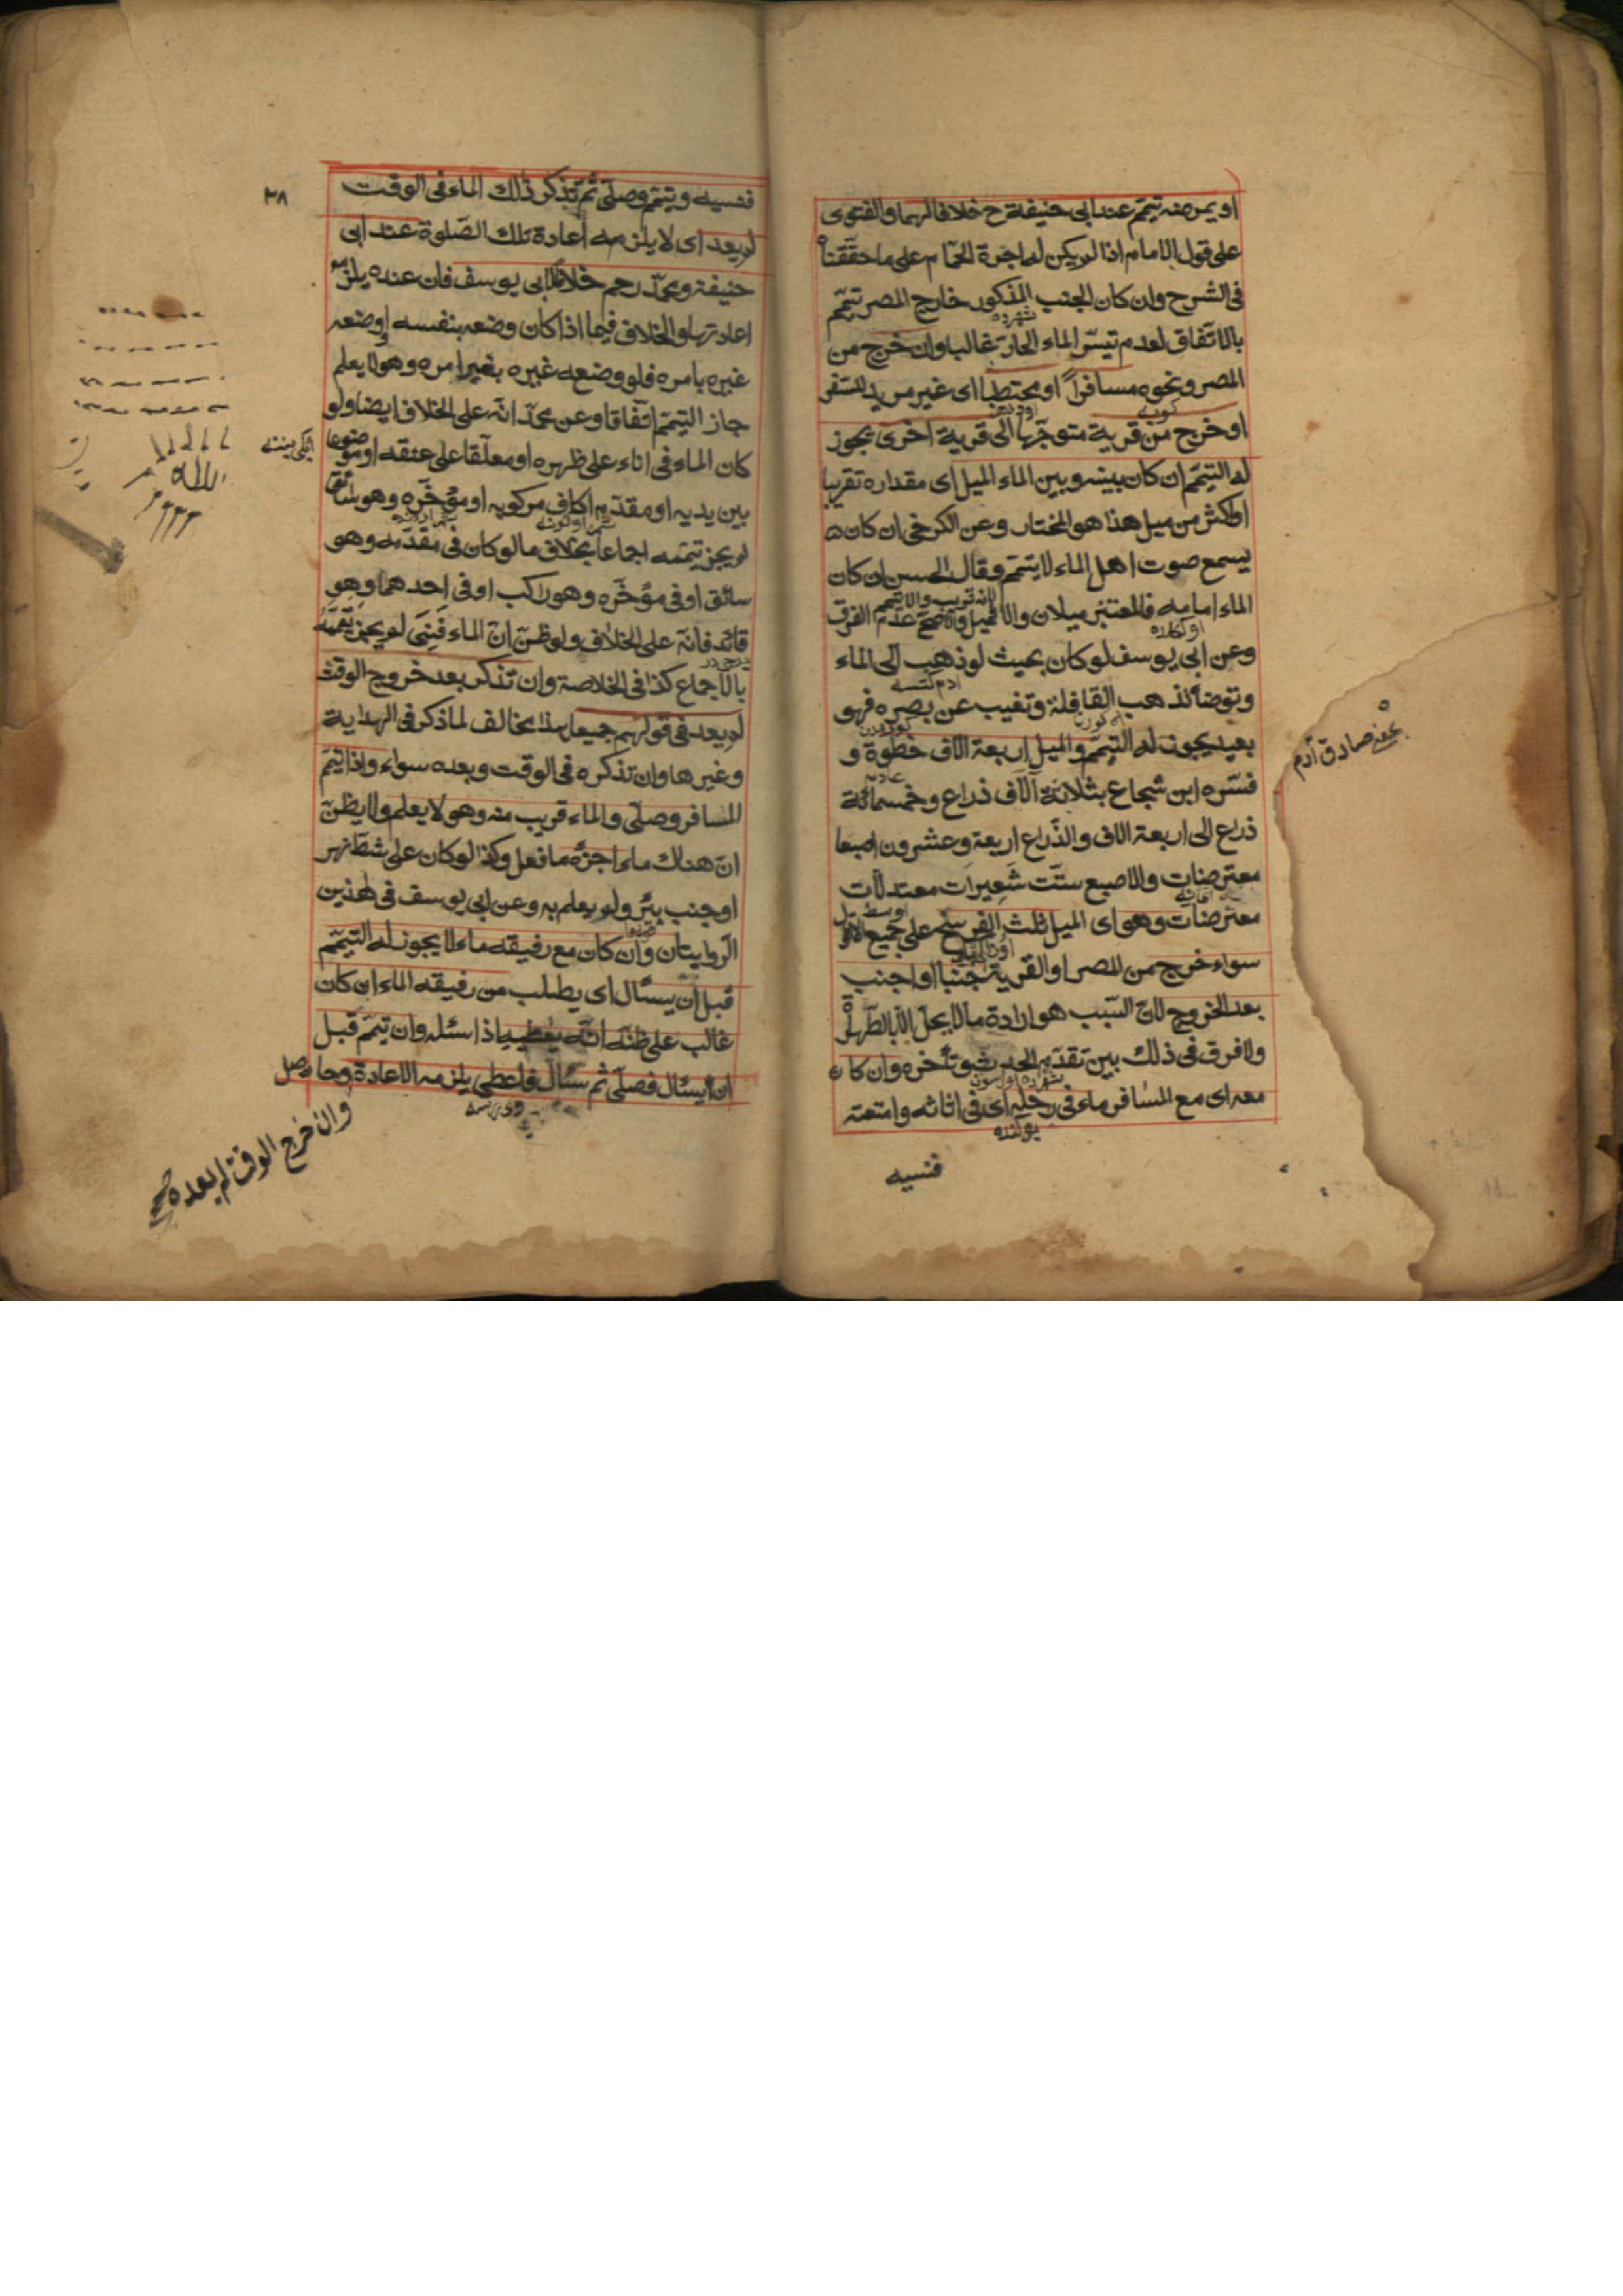 او يمرضه تيمم عند ابى حنيفة رح خلافا لهما والفتوى
على قول الامام اذا لم يكن له اجرة الحمام على ما حققناه
فى الشرح وان كان الجنب المذكور خارج المصر تيمم
بالاتفاق لعدم تيسر الماء الحار غالبا وان خرج من
المصر ونحوه مسافرا او محتطبا اى غير مريد للسفر
او خرج من قرية متوجها الى قرية اخرى يجوز
له التيمم ان كان بينه وبين الماء الميل اى مقداره تقريبا
او اكثر من ميل هذا هو المختار وعن الكرخى ان كان
يسمع صوت اهل الماء لا يتيمم وقال الحسن ان كان
الماء امامه فالمعتبر ميلان والا فميل والاصح عدم الفرق
وعن ابى يوسف لو كان بحيث لو ذهب الى الماء
وتوضأ تذهب القافلة وتغيب عن بصره فهو
بعيد يجوز له التيمم والميل اربعة الاف خطوة و
فسره ابن شجاع بثلاثة آلاف ذراع وخمسمائة
ذراع الى اربعة الاف والذراع اربعة وعشرون اصبعا
معترضات والاصبع ستت شعيرات معتدلات
معترضات وهو اى الميل ثلث الفرسخ على جميع الاقوال
سواء خرج من المصر او القرية جنبا او اجنب
بعد الخروج لان السبب هو ارادة ما لا يحل الا بالطهارة
ولا فرق فى ذلك بين تقدم الحدث وتأخره وان كان
معه اى مع المسافر ماء فى رحله اى فى اثاثه وامتعته
فنسيه
يعنى صادق آدم
٣٨
فنسيه وتيمم وصلى ثم تذكر ذلك الماء فى الوقت
لم يعد اى لا يلزمه اعادة تلك الصلوة عند ابى
حنيفة ومحمد رحم خلافا لابى يوسف فان عنده يلزمه
اعادتها والخلاف فيما اذا كان وضعه بنفسه او وضعه
غيره بامره فلو وضعه غيره بغير امره وهو لا يعلم
جاز التيمم اتفاقا وعن محمد انه على الخلاف ايضا ولو
كان الماء فى اناء على ظهره او معلقا على عنقه او موضوعا
بين يديه او مقدم اكاف مركوبه او مؤخره وهو سائق
لم يجز تيممه اجماعا بخلاف ما لو كان فى مقدمه وهو
سائق او فى مؤخره وهو راكب او فى احدهما وهو
قائد فانه على الخلاف ولو ظن ان الماء فنى لم يجز تيممه
بالاجماع كذا فى الخلاصة وان تذكر بعد خروج الوقت
لم يعد فى قولهم جميعا هذا مخالف لما ذكر فى الهداية
وغيرها وان تذكره فى الوقت وبعده سواء واذا تيمم
المسافر وصلى والماء قريب منه وهو لا يعلم ولا يظن
ان هناك ماء اجزه ما فعل وكذا لو كان على شط نهر
او جنب بئر ولم يعلم به وعن ابى يوسف فى هذين
الروايتان وان كان مع رفيقه ماء لا يجوز له التيمم
قبل ان يسئال اى يطلب من رفيقه الماء ان كان
غالب على ظنه انه يعطيه اذا سئله وان تيمم قبل
ان يسئال فصلى ثم سئال فاعطى يلزمه الاعادة وحاصل
وان خرج الوقت لم يعده صح